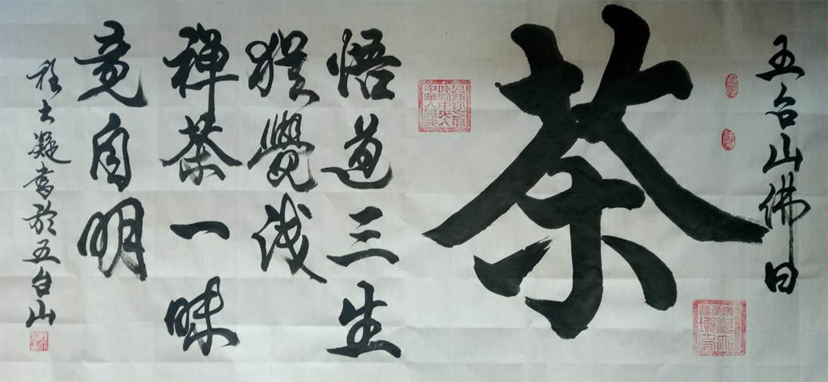 五台山佛曰
茶
悟道三生
猶覺淺
禪茶一味
竟自明
程大凝書於五台山